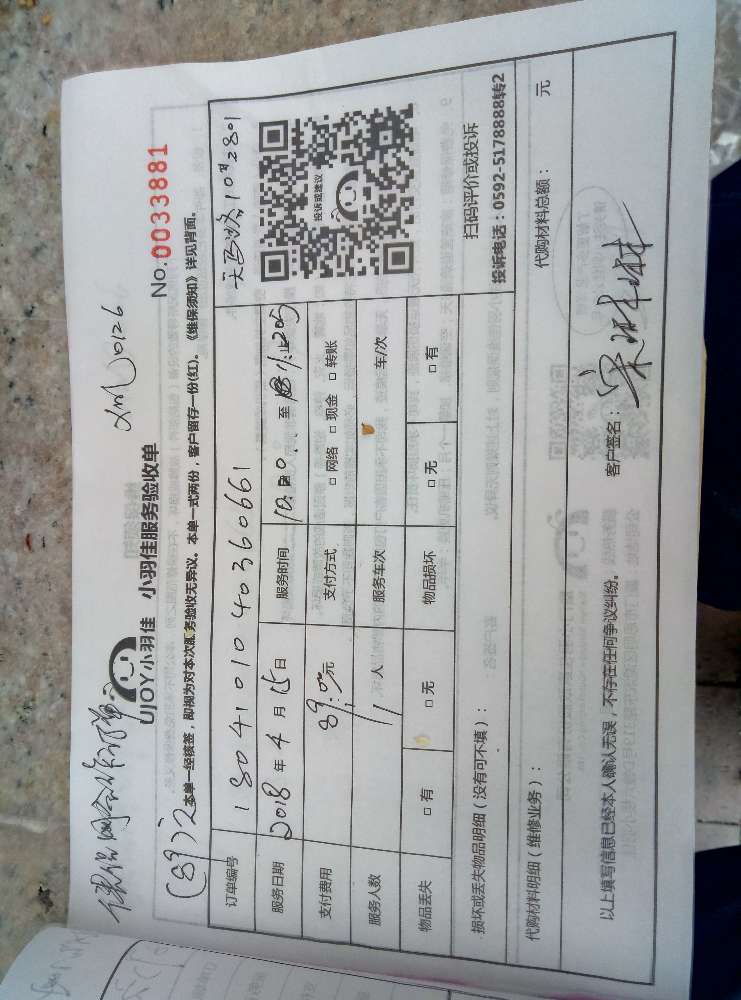 xmj0126
No.0033881
UJOY小羽佳 小羽佳服务验收单
(89)
本单一经核签，即视为对本次服务验收无异议。本单一式两份，客户留存一份(红)。《维保须知》详见背面。
订单编号 180410104036 0661
服务日期 2018年4月15日 服务时间 至
支付费用 89.00元 支付方式 □网络 □现金 □转账
服务人数 1人 服务车次 车/次
物品丢失 □有 □无 物品损坏 □无 □有
投诉或建议
扫码评价或投诉
投诉电话：0592-5178888转2
损坏或丢失物品明细（没有可不填）：
代购材料明细（维修业务）： 代购材料总额： 元
以上填写信息已经本人确认无误，不存在任何争议纠纷。 客户签名：